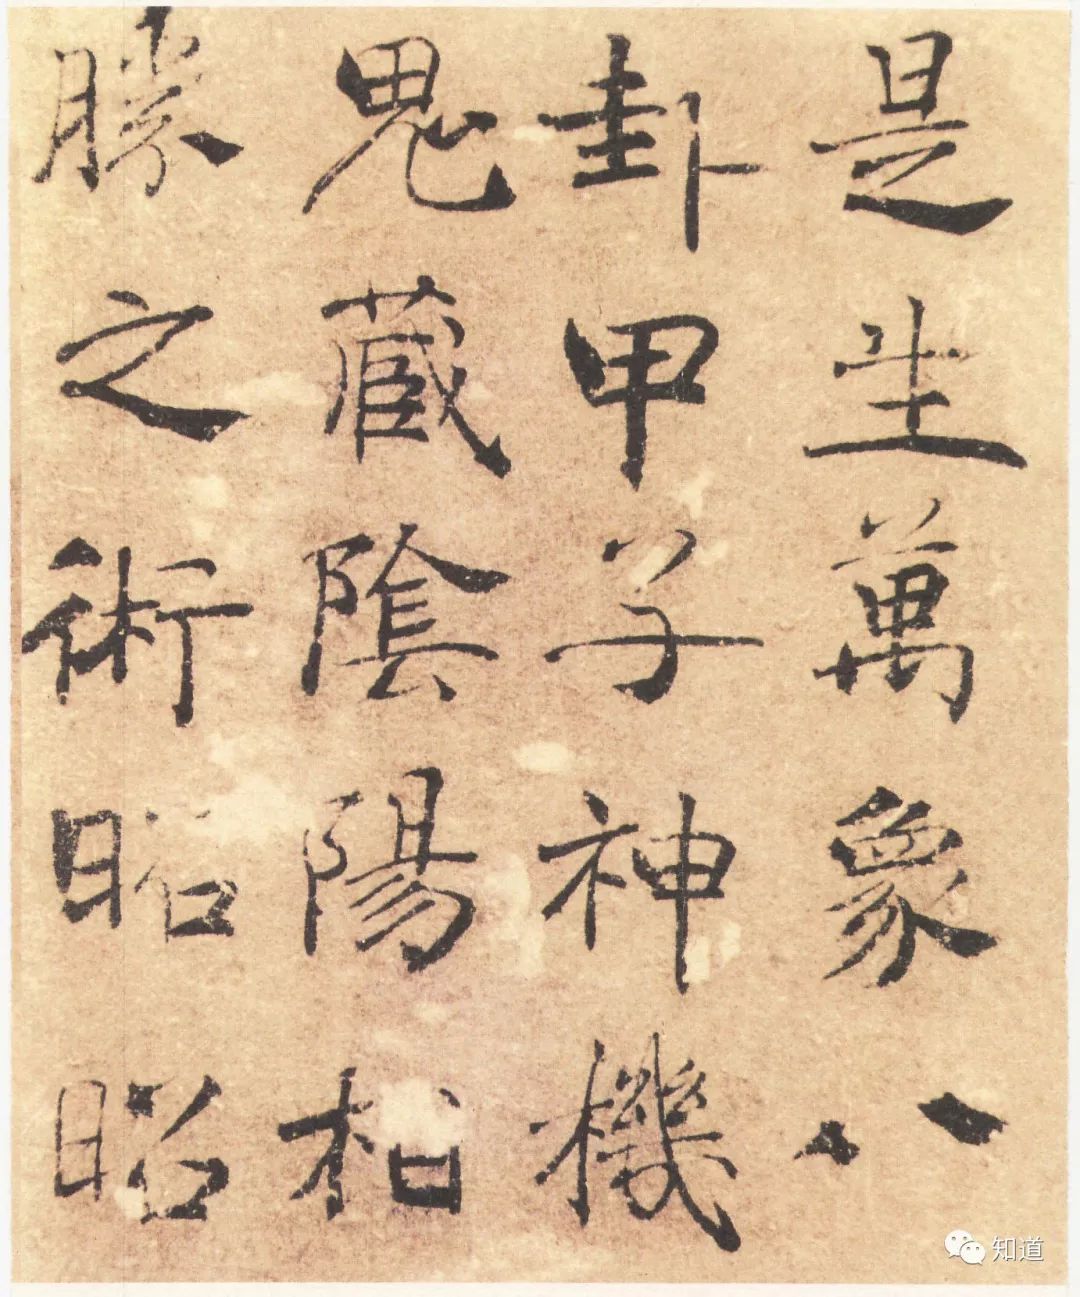 是生萬象八
卦甲子神機
鬼藏陰陽相
勝之術昭昭
知道